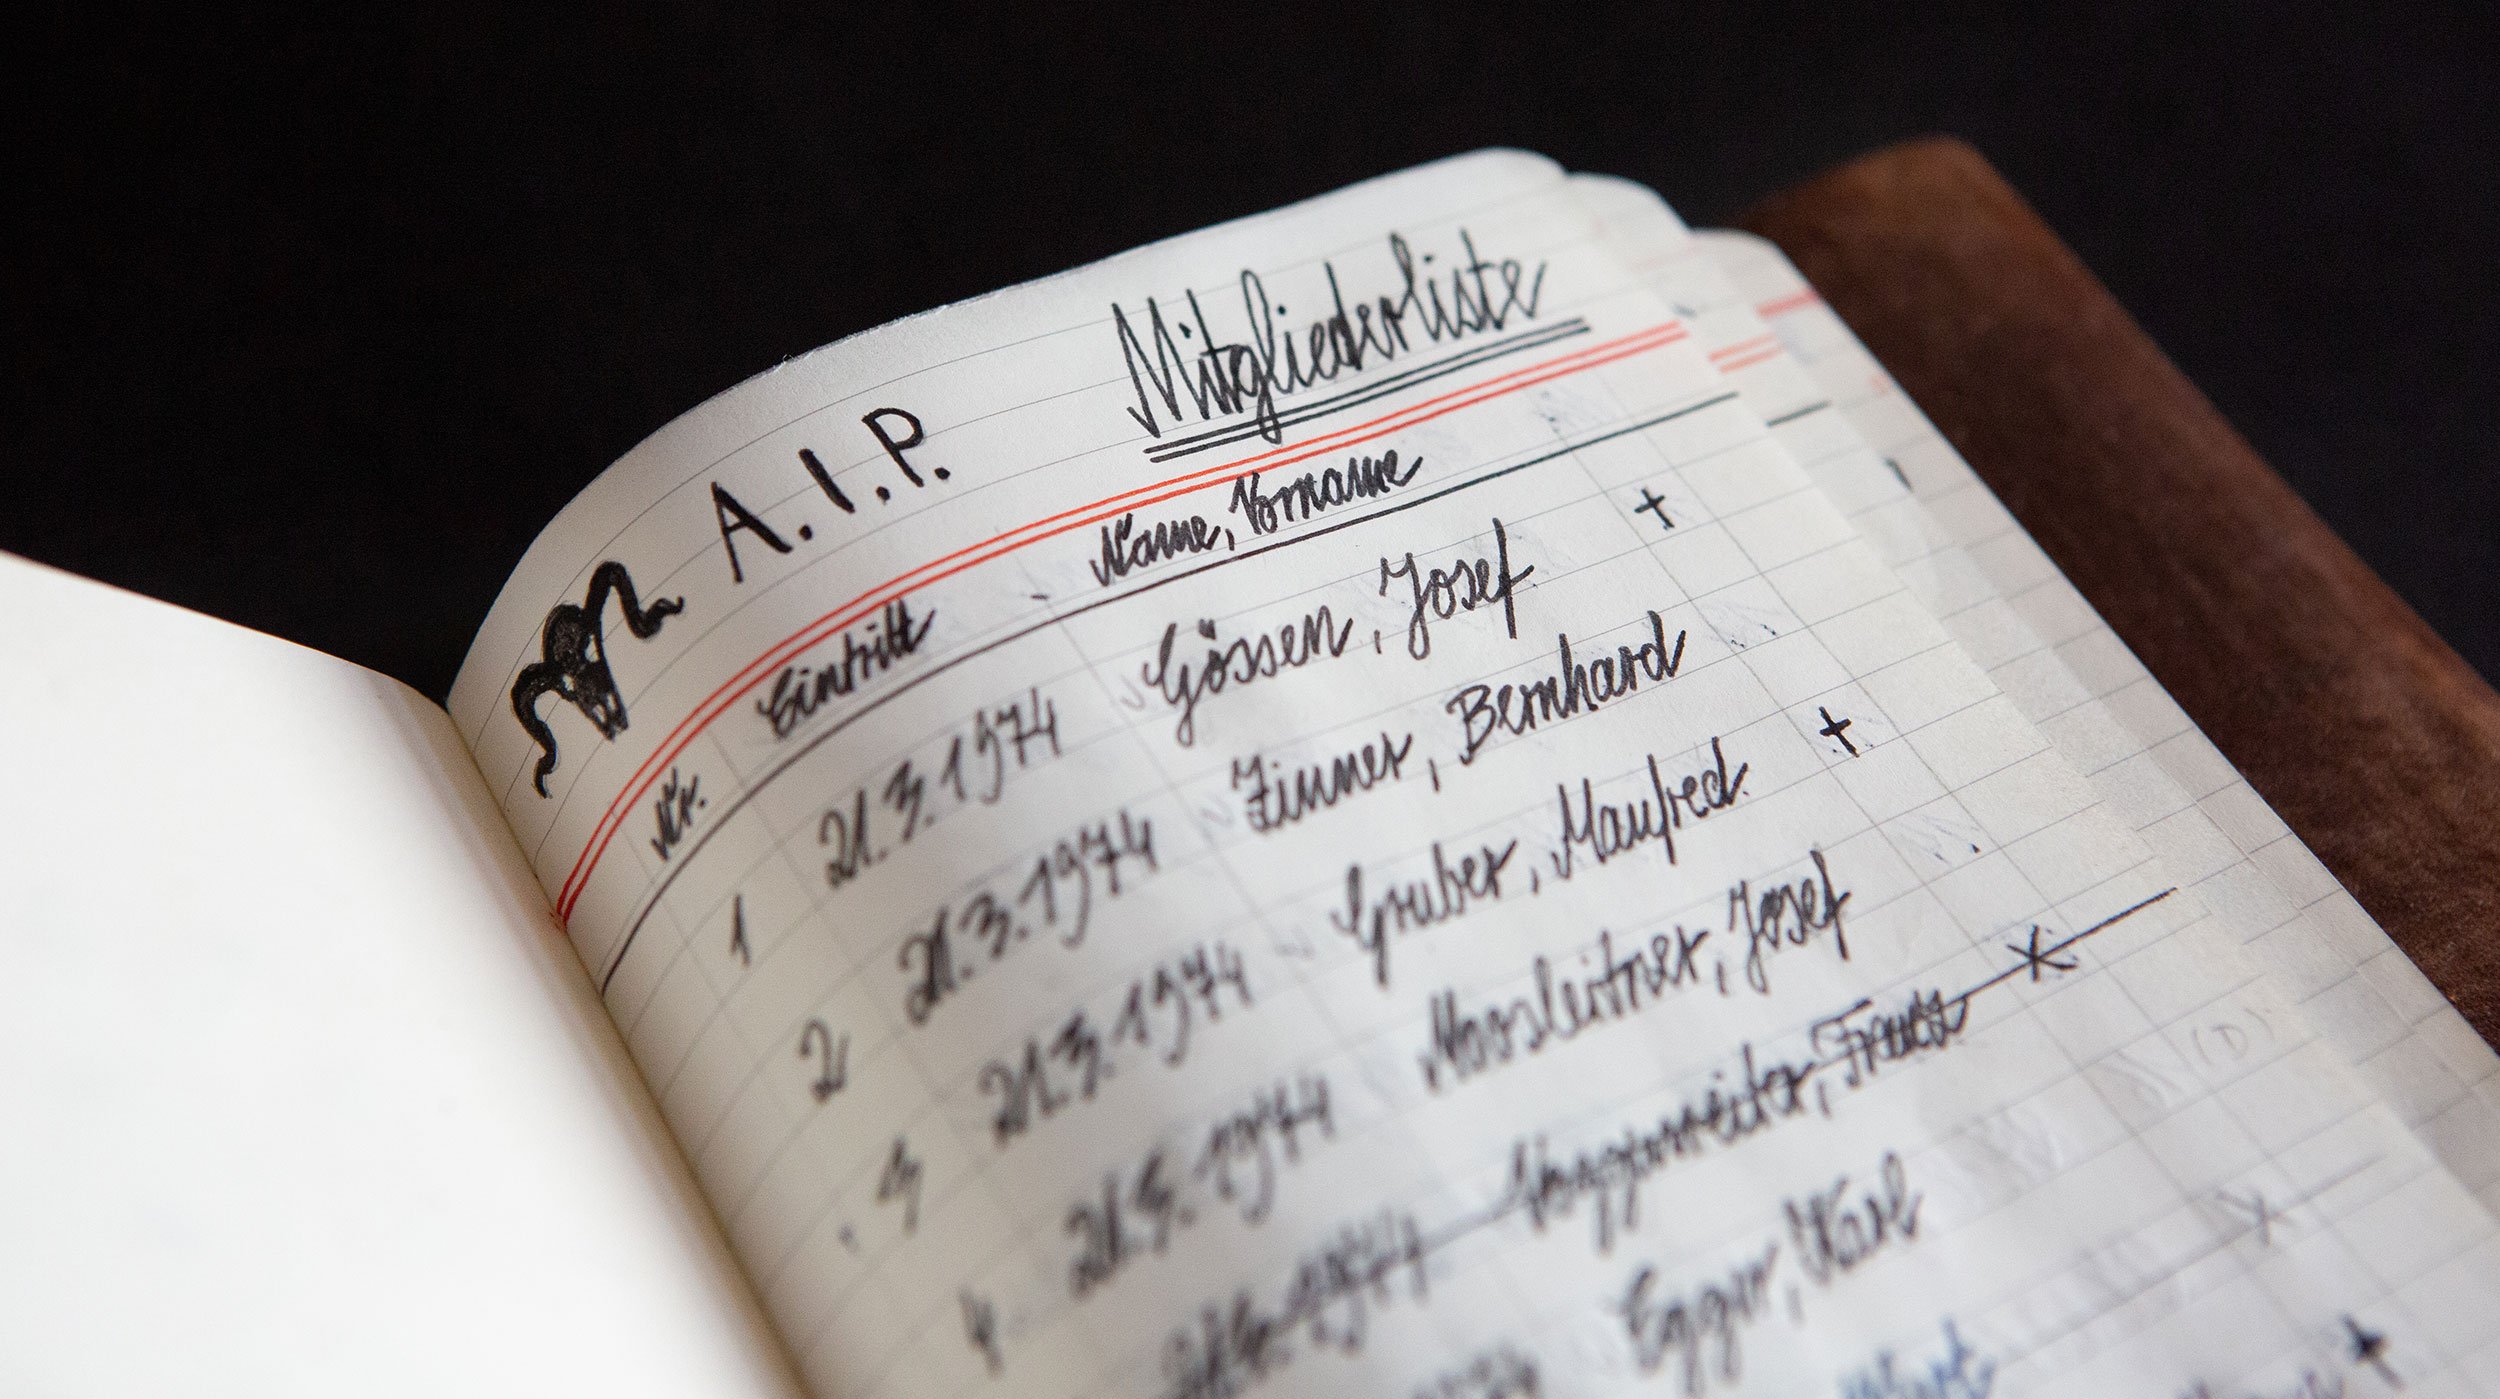 A.I.P. Mitgliederliste
Nr. Eintritt Name, Vorname
1 21.3.1974 Gössen, Josef +
2 21.3.1974 Zinner, Bernhard
3 21.3.1974 Gruber, Manfred +
4 21.5.1974 Moosleitner, Josef
1974 Franz X
Egger, Karl
(D)